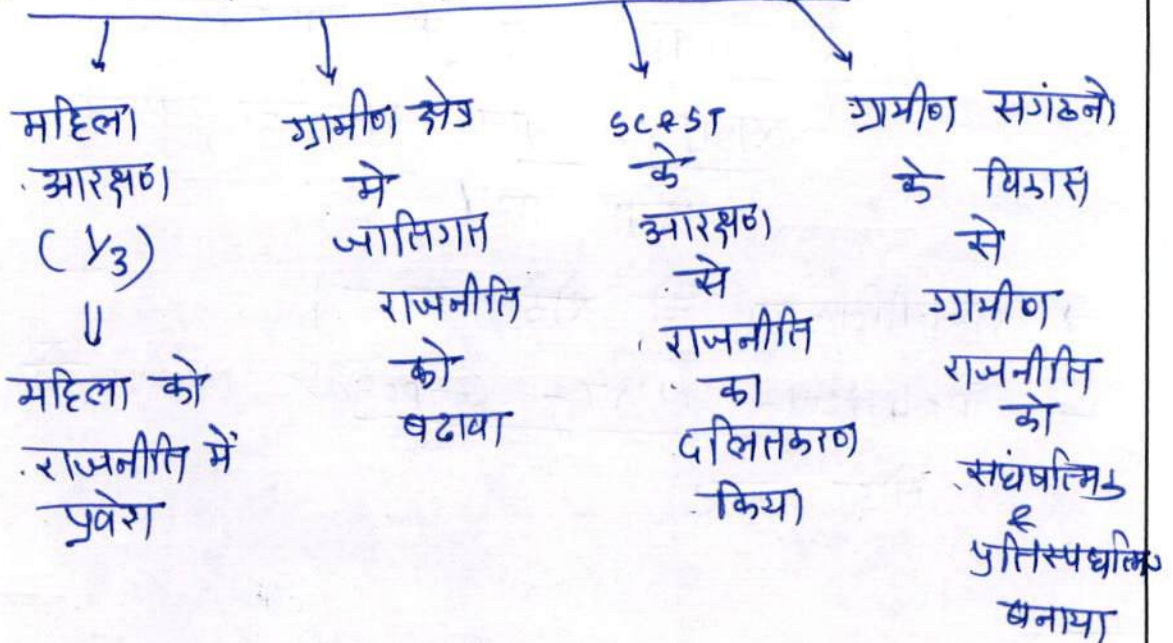 महिला
आरक्षण
(1/3)
⇓
महिला को
राजनीति में
प्रवेश
ग्रामीण क्षेत्र
मे
जातिगत
राजनीति
को
बढावा
SC & ST
के
आरक्षण
से
राजनीति
का
दलितकरण
किया
ग्रामीण सगंठनो
के विकास
से
ग्रामीण
राजनीति
को
संघर्षात्मक
&
प्रतिस्पर्धात्मक
बनाया